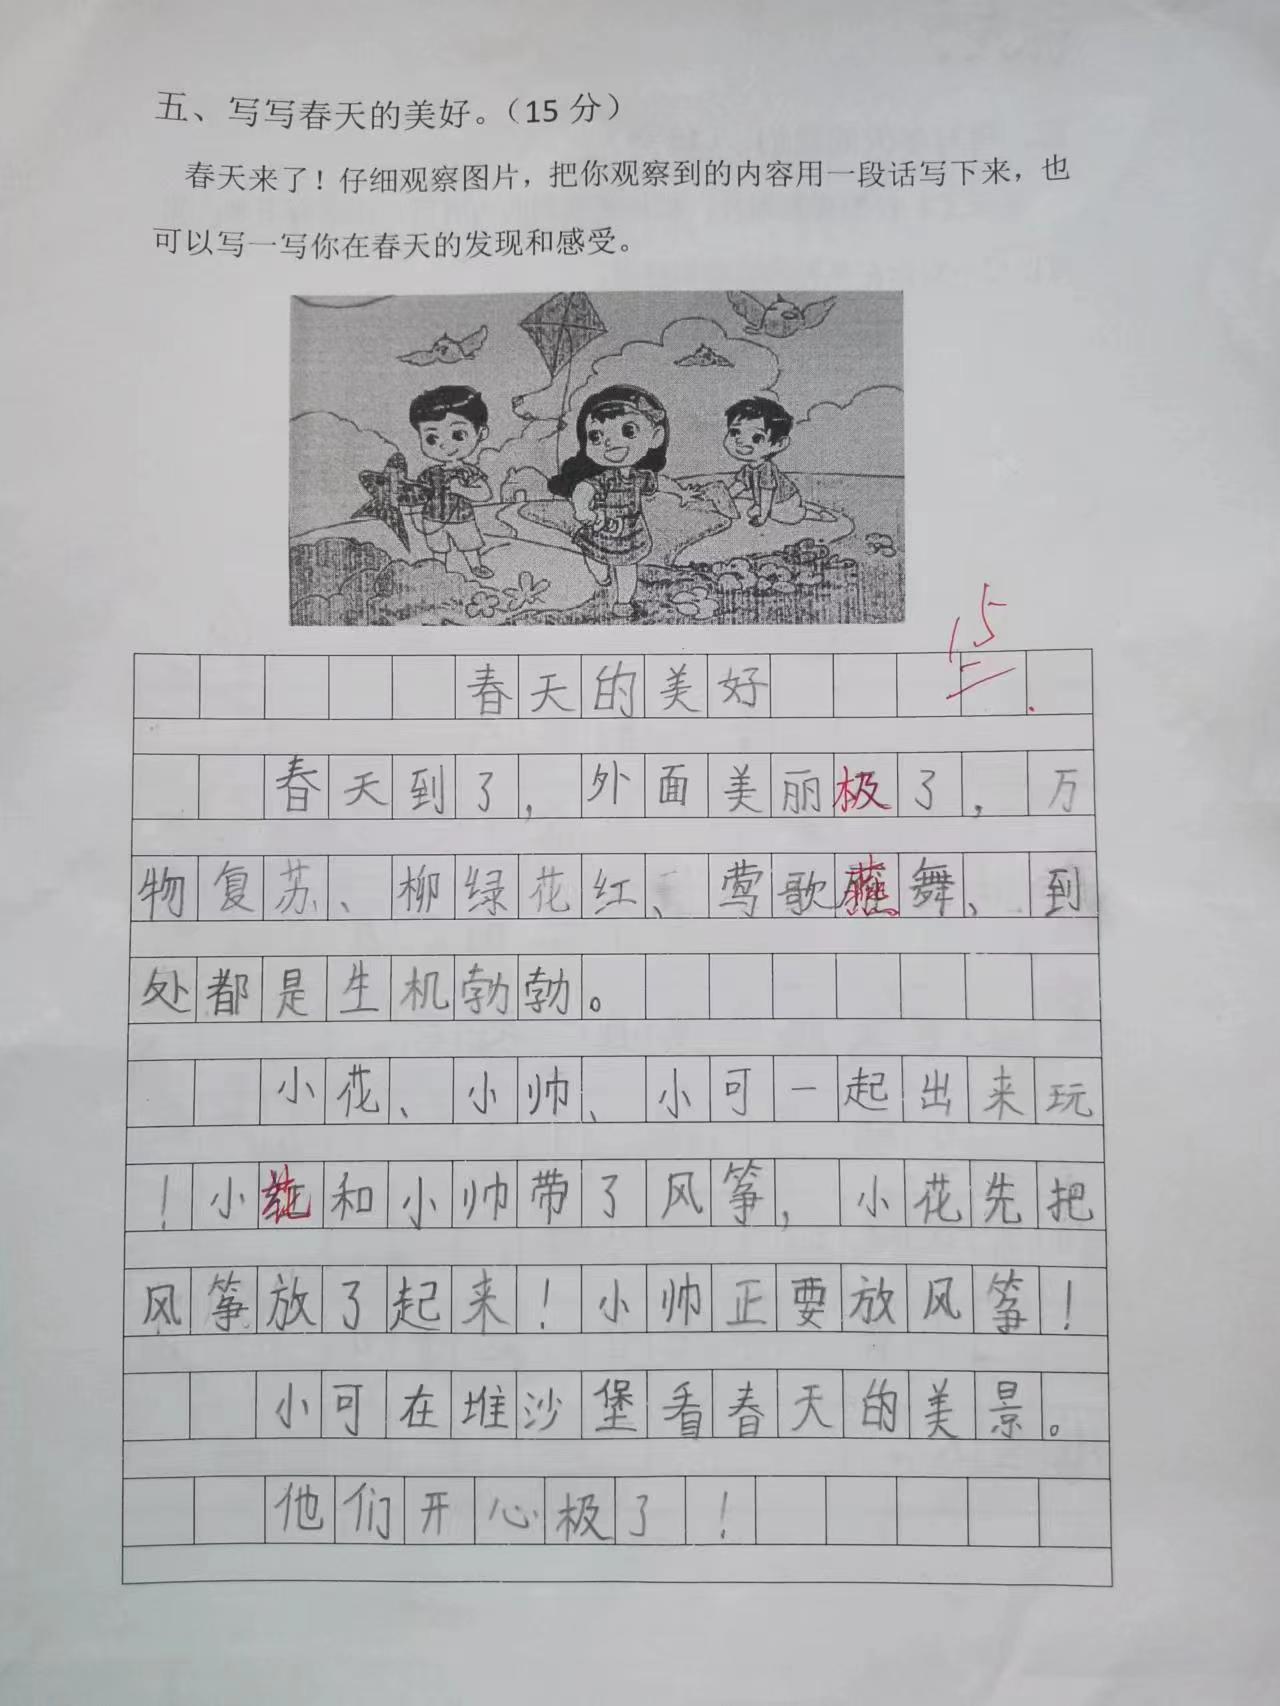 五、写写春天的美好。（15 分）
春天来了！仔细观察图片，把你观察到的内容用一段话写下来，也
可以写一写你在春天的发现和感受。
15
春天的美好
春天到了，外面美丽极了，万
物复苏、柳绿花红、莺歌燕舞、到
处都是生机勃勃。
小花、小帅、小可一起出来玩
！小花和小帅带了风筝，小花先把
风筝放了起来！小帅正要放风筝！
小可在堆沙堡看春天的美景。
他们开心极了！